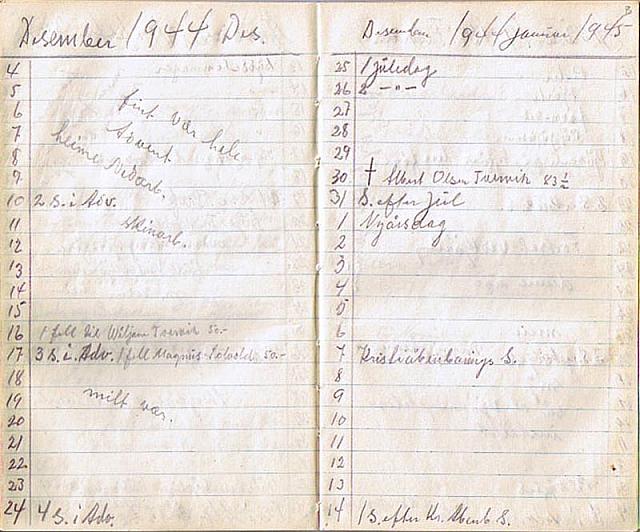 Desember 1944 Des.
4
5
6 fint vær hele
7 Advent
8 heime Vedarb.
9
10 2 S. i Adv.
11 skinarb.
12
13
14
15
16 1 fell til Wiljam Tverrvik 50.-
17 3 S. i. Adv. 1 fell Magnus 50.-
18
19 milt vær.
20
21
22
23
24 4 S. i Adv.
Desember 1944 Januar 1945
25 1 Juledag
26 2 — " —
27
28
29
30 † Albert Olsen Tverrvik 83 ½
31 S. efter Jul
1 Nyårsdag
2
3
4
5
6
7 Kristiåbenbarings S.
8
9
10
11
12
13
14 1 S. efter Kr. Åbenb S.